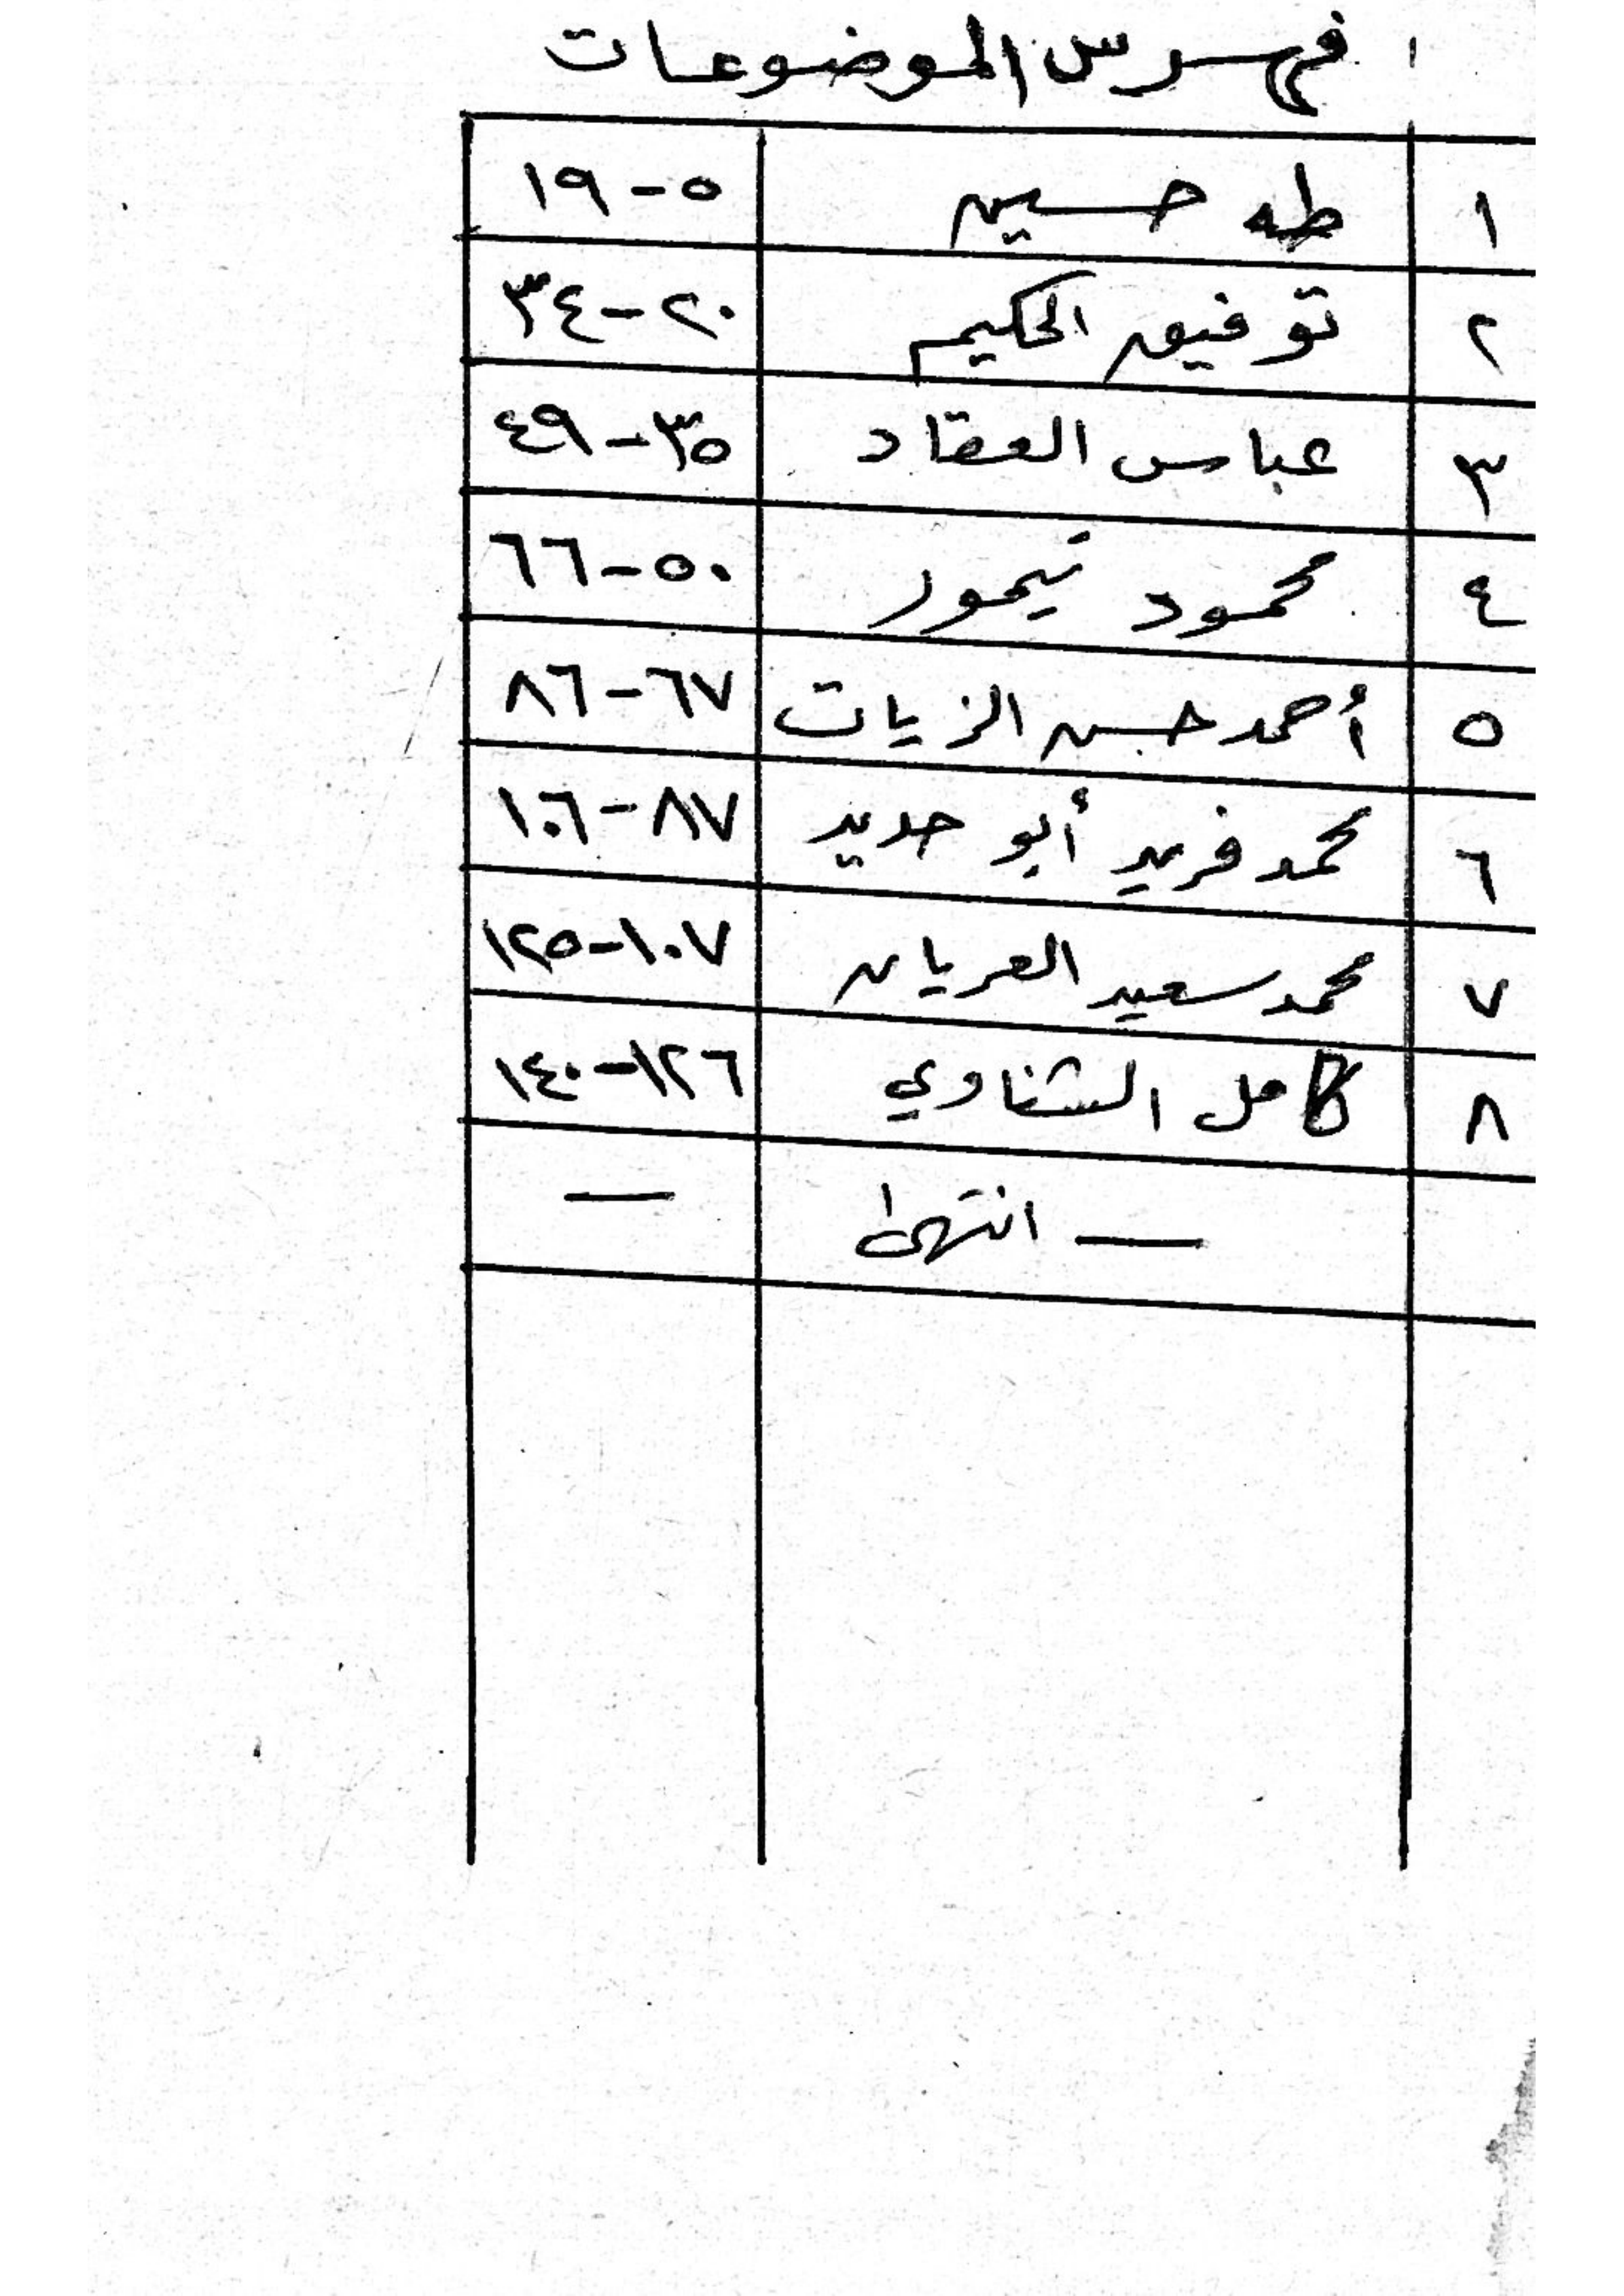 فهرس الموضوعات
١ طه حسين ٥-١٩
٢ توفيق الحكيم ٢٠-٣٤
٣ عباس العقاد ٣٥-٤٩
٤ محمود تيمور ٥٠-٦٦
٥ أحمد حسن الزيات ٦٧-٨٦
٦ محمد فريد أبو حديد ٨٧-١٠٦
٧ محمد سعيد العريان ١٠٧-١٢٥
٨ كامل الشناوي ١٢٦-١٤٠
— انتهى —